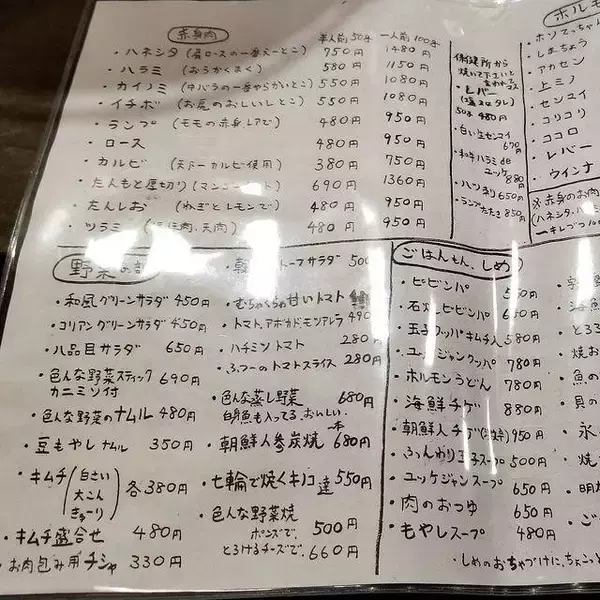 赤身肉
半人前50g 一人前100g
・ハネシタ(肩ロースの一番えーとこ) 750円 1480円
・ハラミ(おうかくまく) 580円 1150円
・カイノミ(中バラの一番やらかいとこ) 550円 1080円
・イチボ(お尻のおいしいとこ) 550円 1080円
・ランプ(モモの赤身レアで) 480円 950円
・ロース 480円 950円
・カルビ(天下一カルビ使用) 380円 750円
・たんもと厚切り 690円 1360円
・たんしお(ねぎとレモンで) 480円 950円
・ツラミ 480円 950円
保健所から
焼いて下さいと
・レバー
(塩 or タレ)
50g 480円
・白い生センマイ
670円
・和牛ハラミ de
ユッケ 880円
・ハツ刺 650円
・ランプたたき 850円
ホルモ
・ホソ
・しまちょう
・アカセン
・上ミノ
・センマイ
・コリコリ
・ココロ
・レバー
・ウインナ
※赤身のお肉
(ハネシタ・ハ
一キレづつ
野菜
トーフサラダ
・和風グリーンサラダ 450円
・コリアングリーンサラダ 450円
・八品目サラダ 650円
・色んな野菜スティック 690円
カニミソ付
・色んな野菜のナムル 480円
・豆もやしナムル 350円
・キムチ(白さい 大こん きゅーり) 各380円
・キムチ盛合せ 480円
・お肉包み用チシャ 330円
・むちゃくちゃ甘いトマト
・トマト、アボカドモツアレラ 490
・ハチミツトマト 280円
・ふつーのトマトスライス 280円
・色んな蒸し野菜 680円
白身魚も入ってる、おいしい
・朝鮮人参炭焼 一本 680円
・七輪で焼くキノコ達 550円
・色んな野菜焼
ポンズで、 500円
とろけるチーズで、 660円
ごはんもん、しめ
・ビビンバ 550円
・石焼ビビンバ 650円
・玉子クッパキムチ入 580円
・ユッケジャンクッパ 780円
・ホルモンうどん 780円
・海鮮チゲ 880円
・朝鮮人チゲ 950円
・ふんわり玉子スープ 500円
・ユッケジャンスープ 650円
・肉のおつゆ 650円
・もやしスープ 480円
・しめのおちゃづけに、ちょこっ
・海鮮
・とろろ
・焼お
・魚の
・貝の
・氷
・焼
・明
・ご